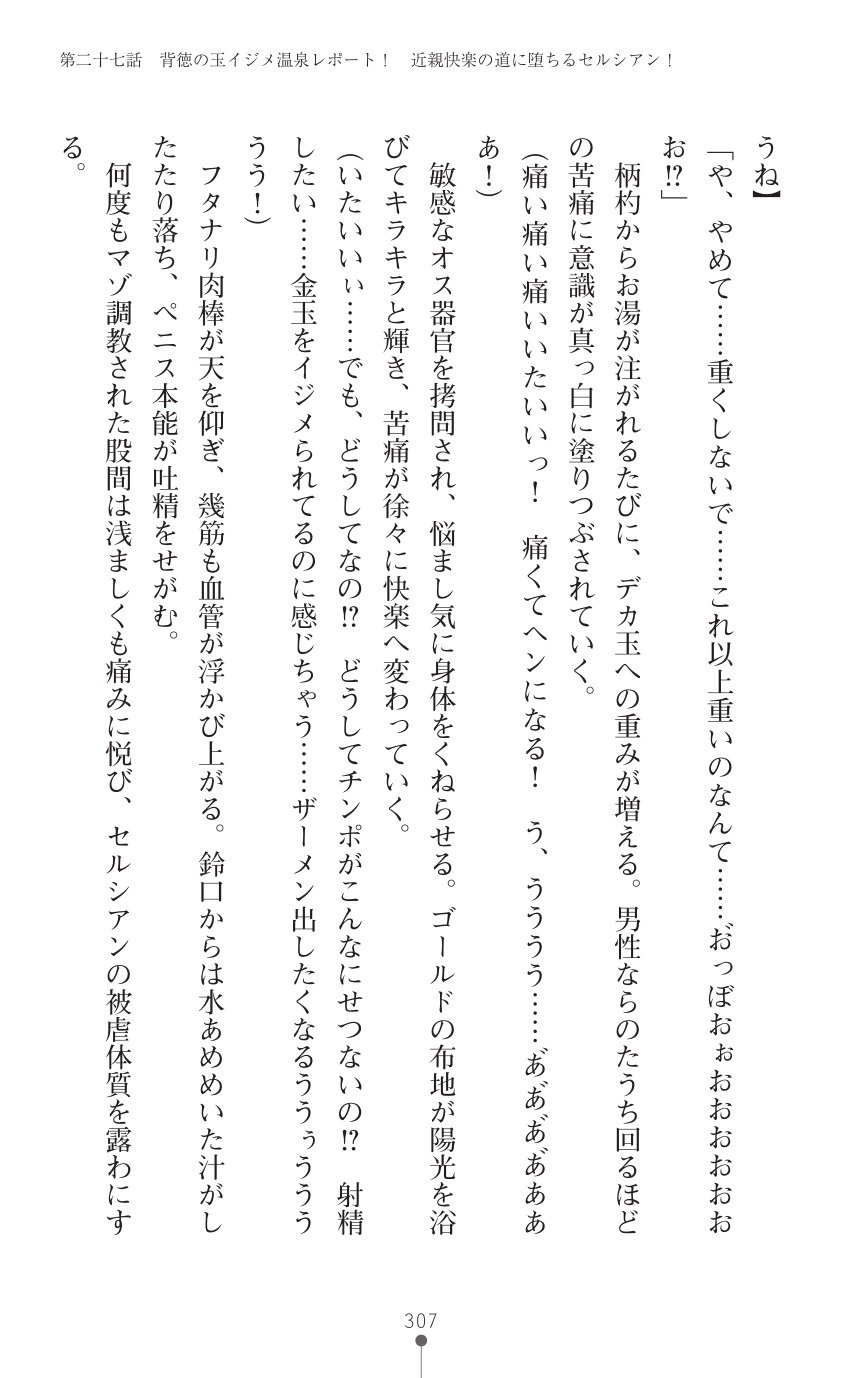 第二十七話　背徳の玉イジメ温泉レポート！　近親快楽の道に堕ちるセルシアン！
うね】
「や、やめて……重くしないで……これ以上重いのなんて……お゛っぼおぉおおおおおお
お⁉」
　柄杓からお湯が注がれるたびに、デカ玉への重みが増える。男性ならのたうち回るほど
の苦痛に意識が真っ白に塗りつぶされていく。
（痛い痛い痛いいたいいっ！　痛くてヘンになる！　う、うううう……あ゛あ゛あ゛あ゛ああ
あ！）
　敏感なオス器官を拷問され、悩まし気に身体をくねらせる。ゴールドの布地が陽光を浴
びてキラキラと輝き、苦痛が徐々に快楽へ変わっていく。
（いたいいぃ……でも、どうしてなの⁉　どうしてチンポがこんなにせつないの⁉　射精
したい……金玉をイジメられてるのに感じちゃう……ザーメン出したくなるううぅううう
うう！）
　フタナリ肉棒が天を仰ぎ、幾筋も血管が浮かび上がる。鈴口からは水あめめいた汁がし
たたり落ち、ペニス本能が吐精をせがむ。
　何度もマゾ調教された股間は浅ましくも痛みに悦び、セルシアンの被虐体質を露わにす
る。
307